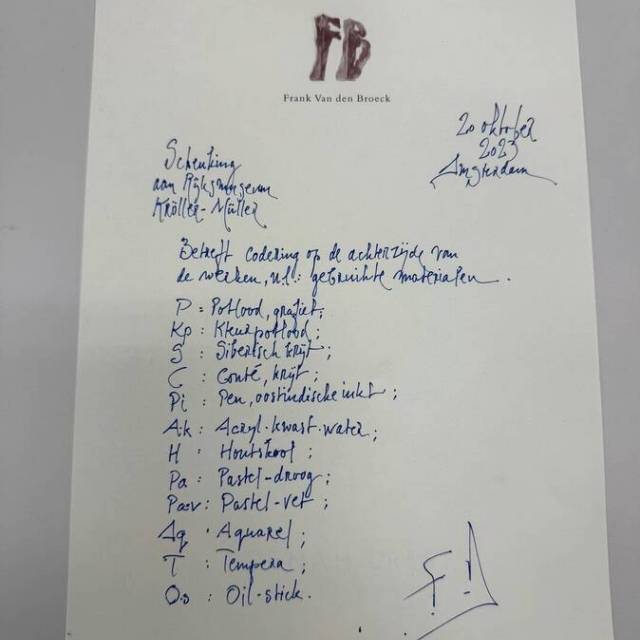 FB
Frank Van den Broeck
20 oktober
2023
Amsterdam
Schenking
aan Rijksmuseum
Kröller-Müller
Betreft codering op de achterzijde van
de werken, nl.: gebruikte materialen.
P : Potlood, grafiet;
Kp : Kleurpotlood;
S : Siberisch krijt;
C : Conté, krijt;
Pi : Pen, oostindische inkt;
Ak : Acryl-kwast-water;
H : Houtskool;
Pa : Pastel-droog;
Pav : Pastel-vet;
Aq : Aquarel;
T : Tempera;
Os : Oil-stick.